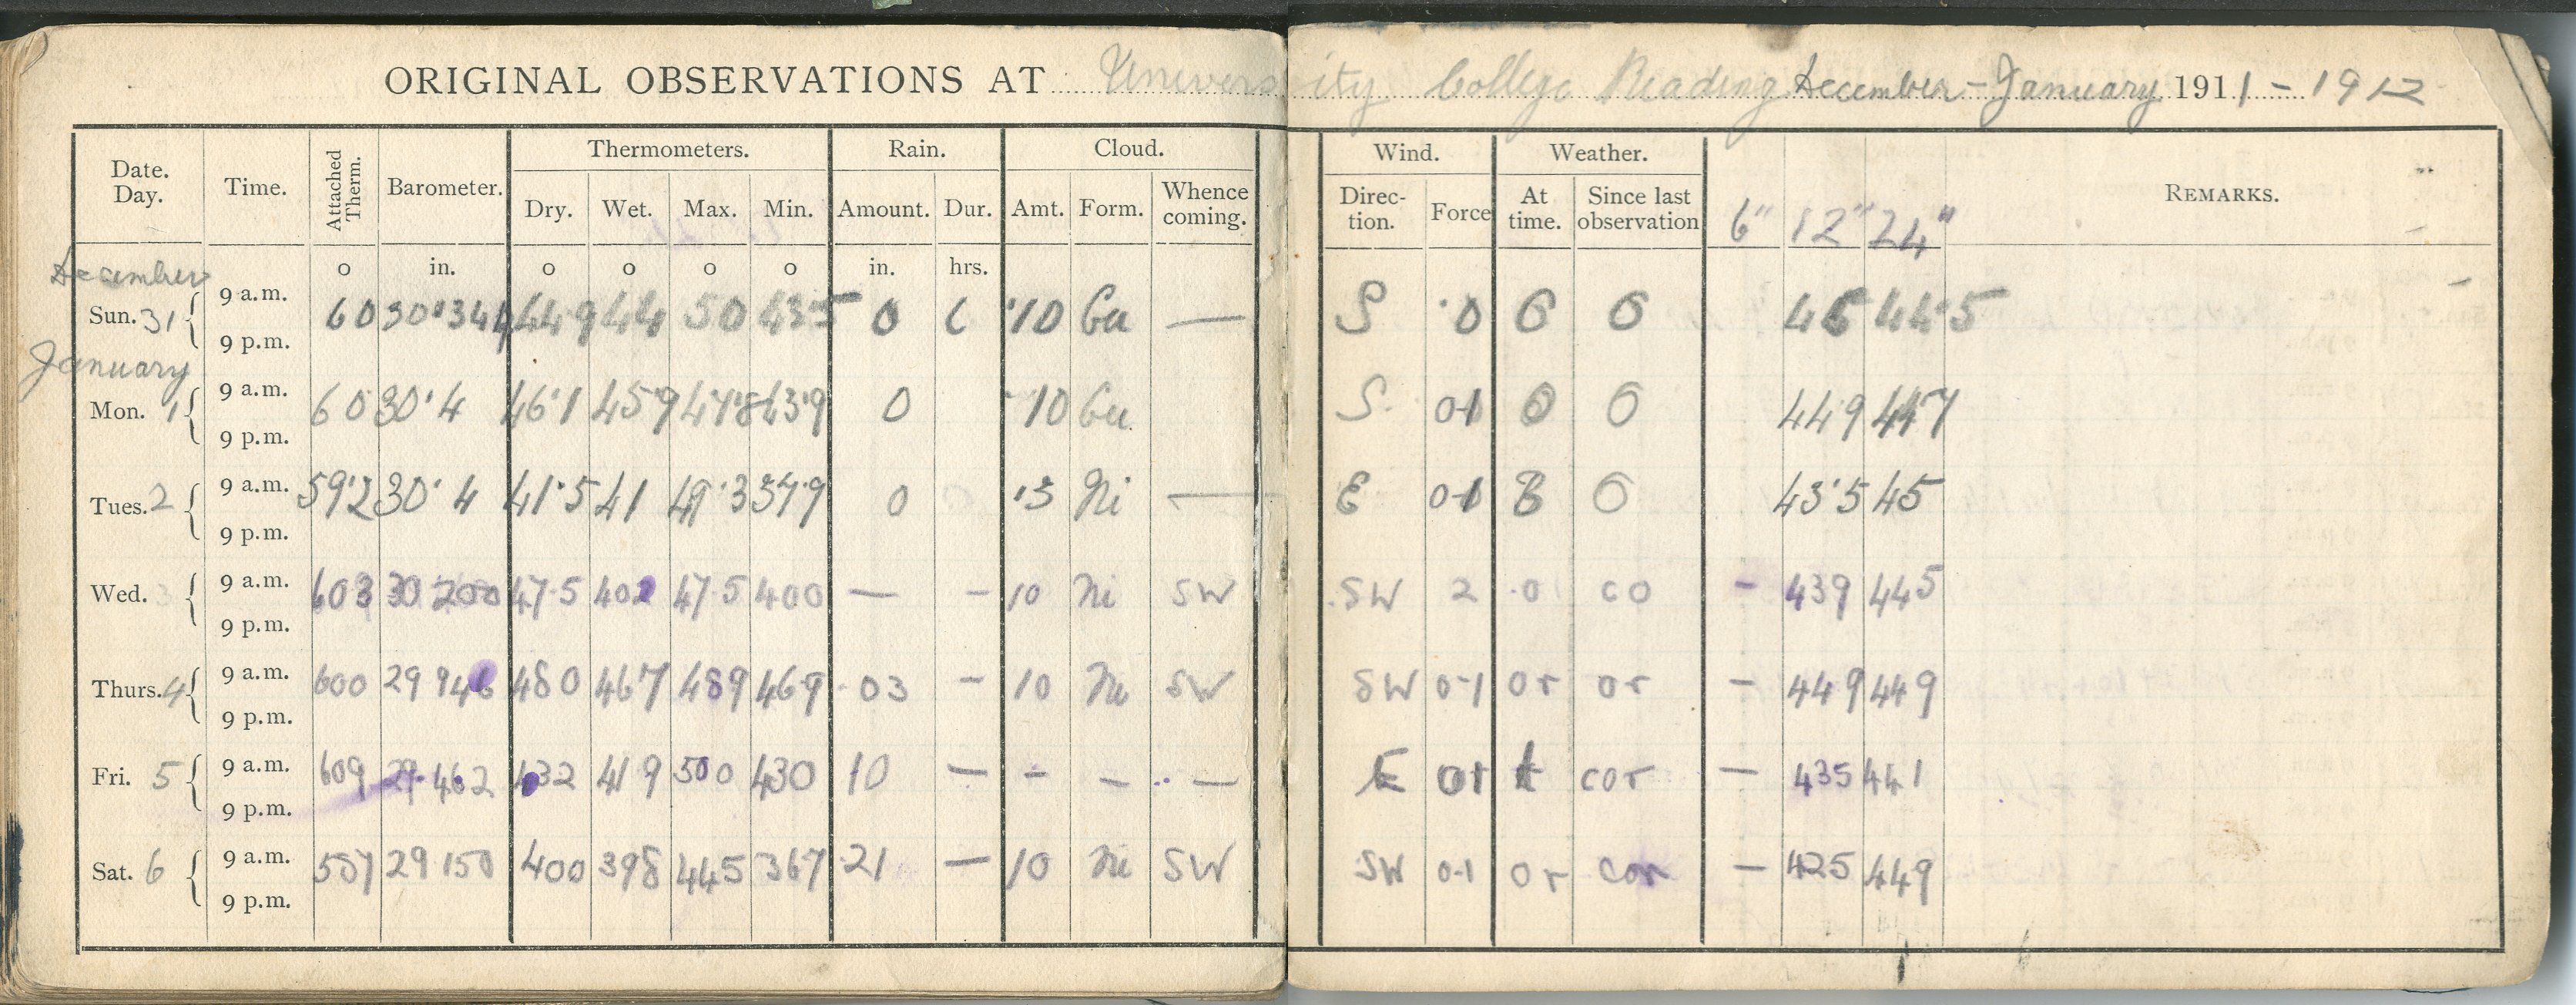 ORIGINAL OBSERVATIONS AT University College Reading December - January 1911 - 1912
Date. Day. Time. Attached Therm. Barometer. Thermometers. Rain. Cloud. Wind. Weather. REMARKS.
Dry. Wet. Max. Min. Amount. Dur. Amt. Form. Whence coming. Direc- tion. Force At time. Since last observation 6" 12" 24"
o in. o o o o in. hrs.
December
Sun. 31 9 a.m. 60 30·344 44·9 44 50 43·5 0 ·10 Cu — S ·0 O O 44·5
9 p.m.
January
Mon. 1 9 a.m. 60 30·4 46·1 45·9 47·8 43·9 0 10 Cu. S. 0-1 O O 449 447
9 p.m.
Tues. 2 9 a.m. 59·2 30·4 41·5 41 49·3 37·9 0 ·3 Ni — E 0-1 B O 43·5 45
9 p.m.
Wed. 3 9 a.m. 603 30 200 47·5 402 47·5 400 — – 10 Ni SW SW 2 o co - 439 445
9 p.m.
Thurs. 4 9 a.m. 600 29 946 480 467 489 469 ·03 – 10 Ni SW SW 0-1 or or – 449 449
9 p.m.
Fri. 5 9 a.m. 609 29·462 432 419 500 430 10 — – – — E 01 f cor — 435 441
9 p.m.
Sat. 6 9 a.m. 587 29 150 400 398 445 367 ·21 — 10 Ni SW SW 0-1 or cor — 425 449
9 p.m.